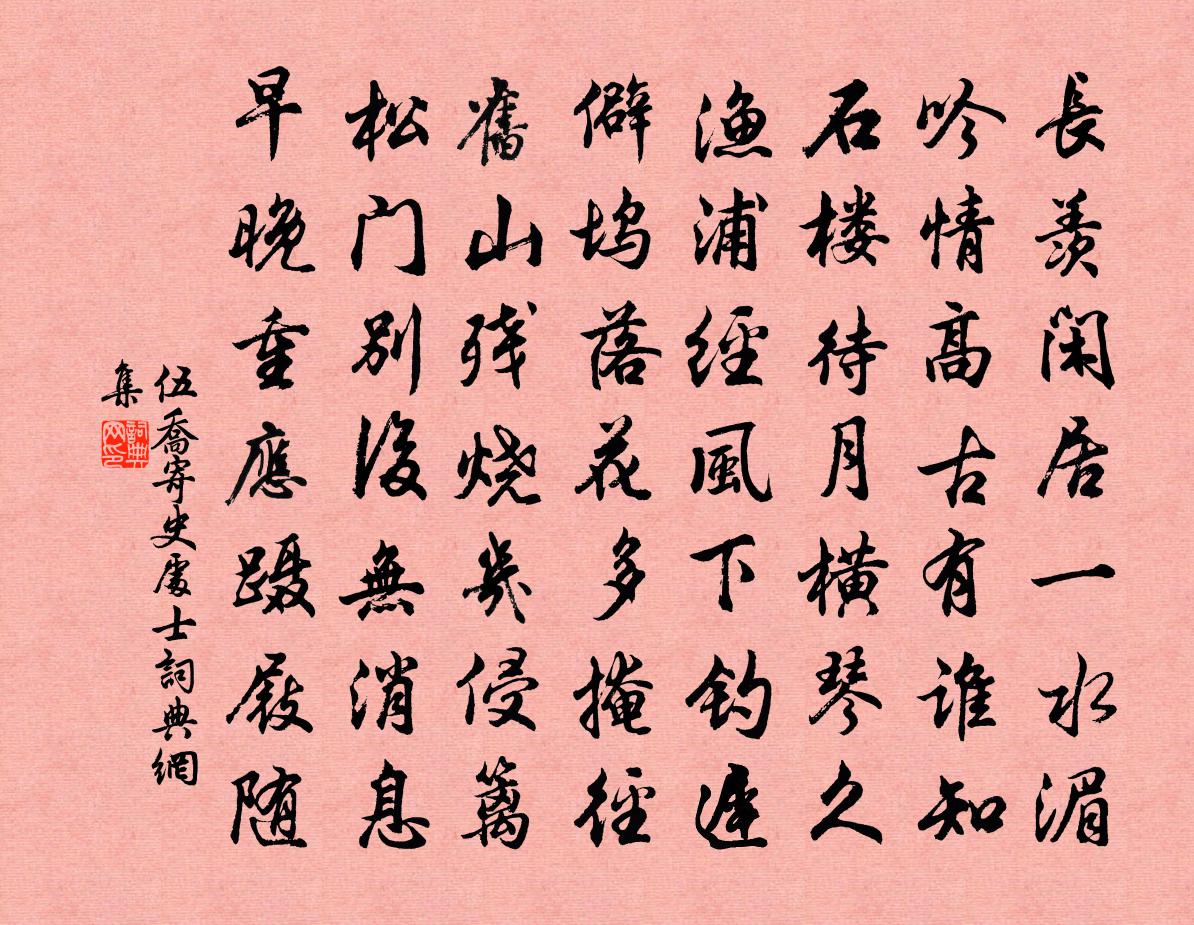 長羨闲居一水湄
吟情高古有谁知
石楼待月横琴久
漁浦經風下钓遲
僻坞落花多掩徑
舊山残燒幾侵篱
松门别後無消息
早晚重應蹑屐随
伍喬寄史處士詞典網
集
詞典网印